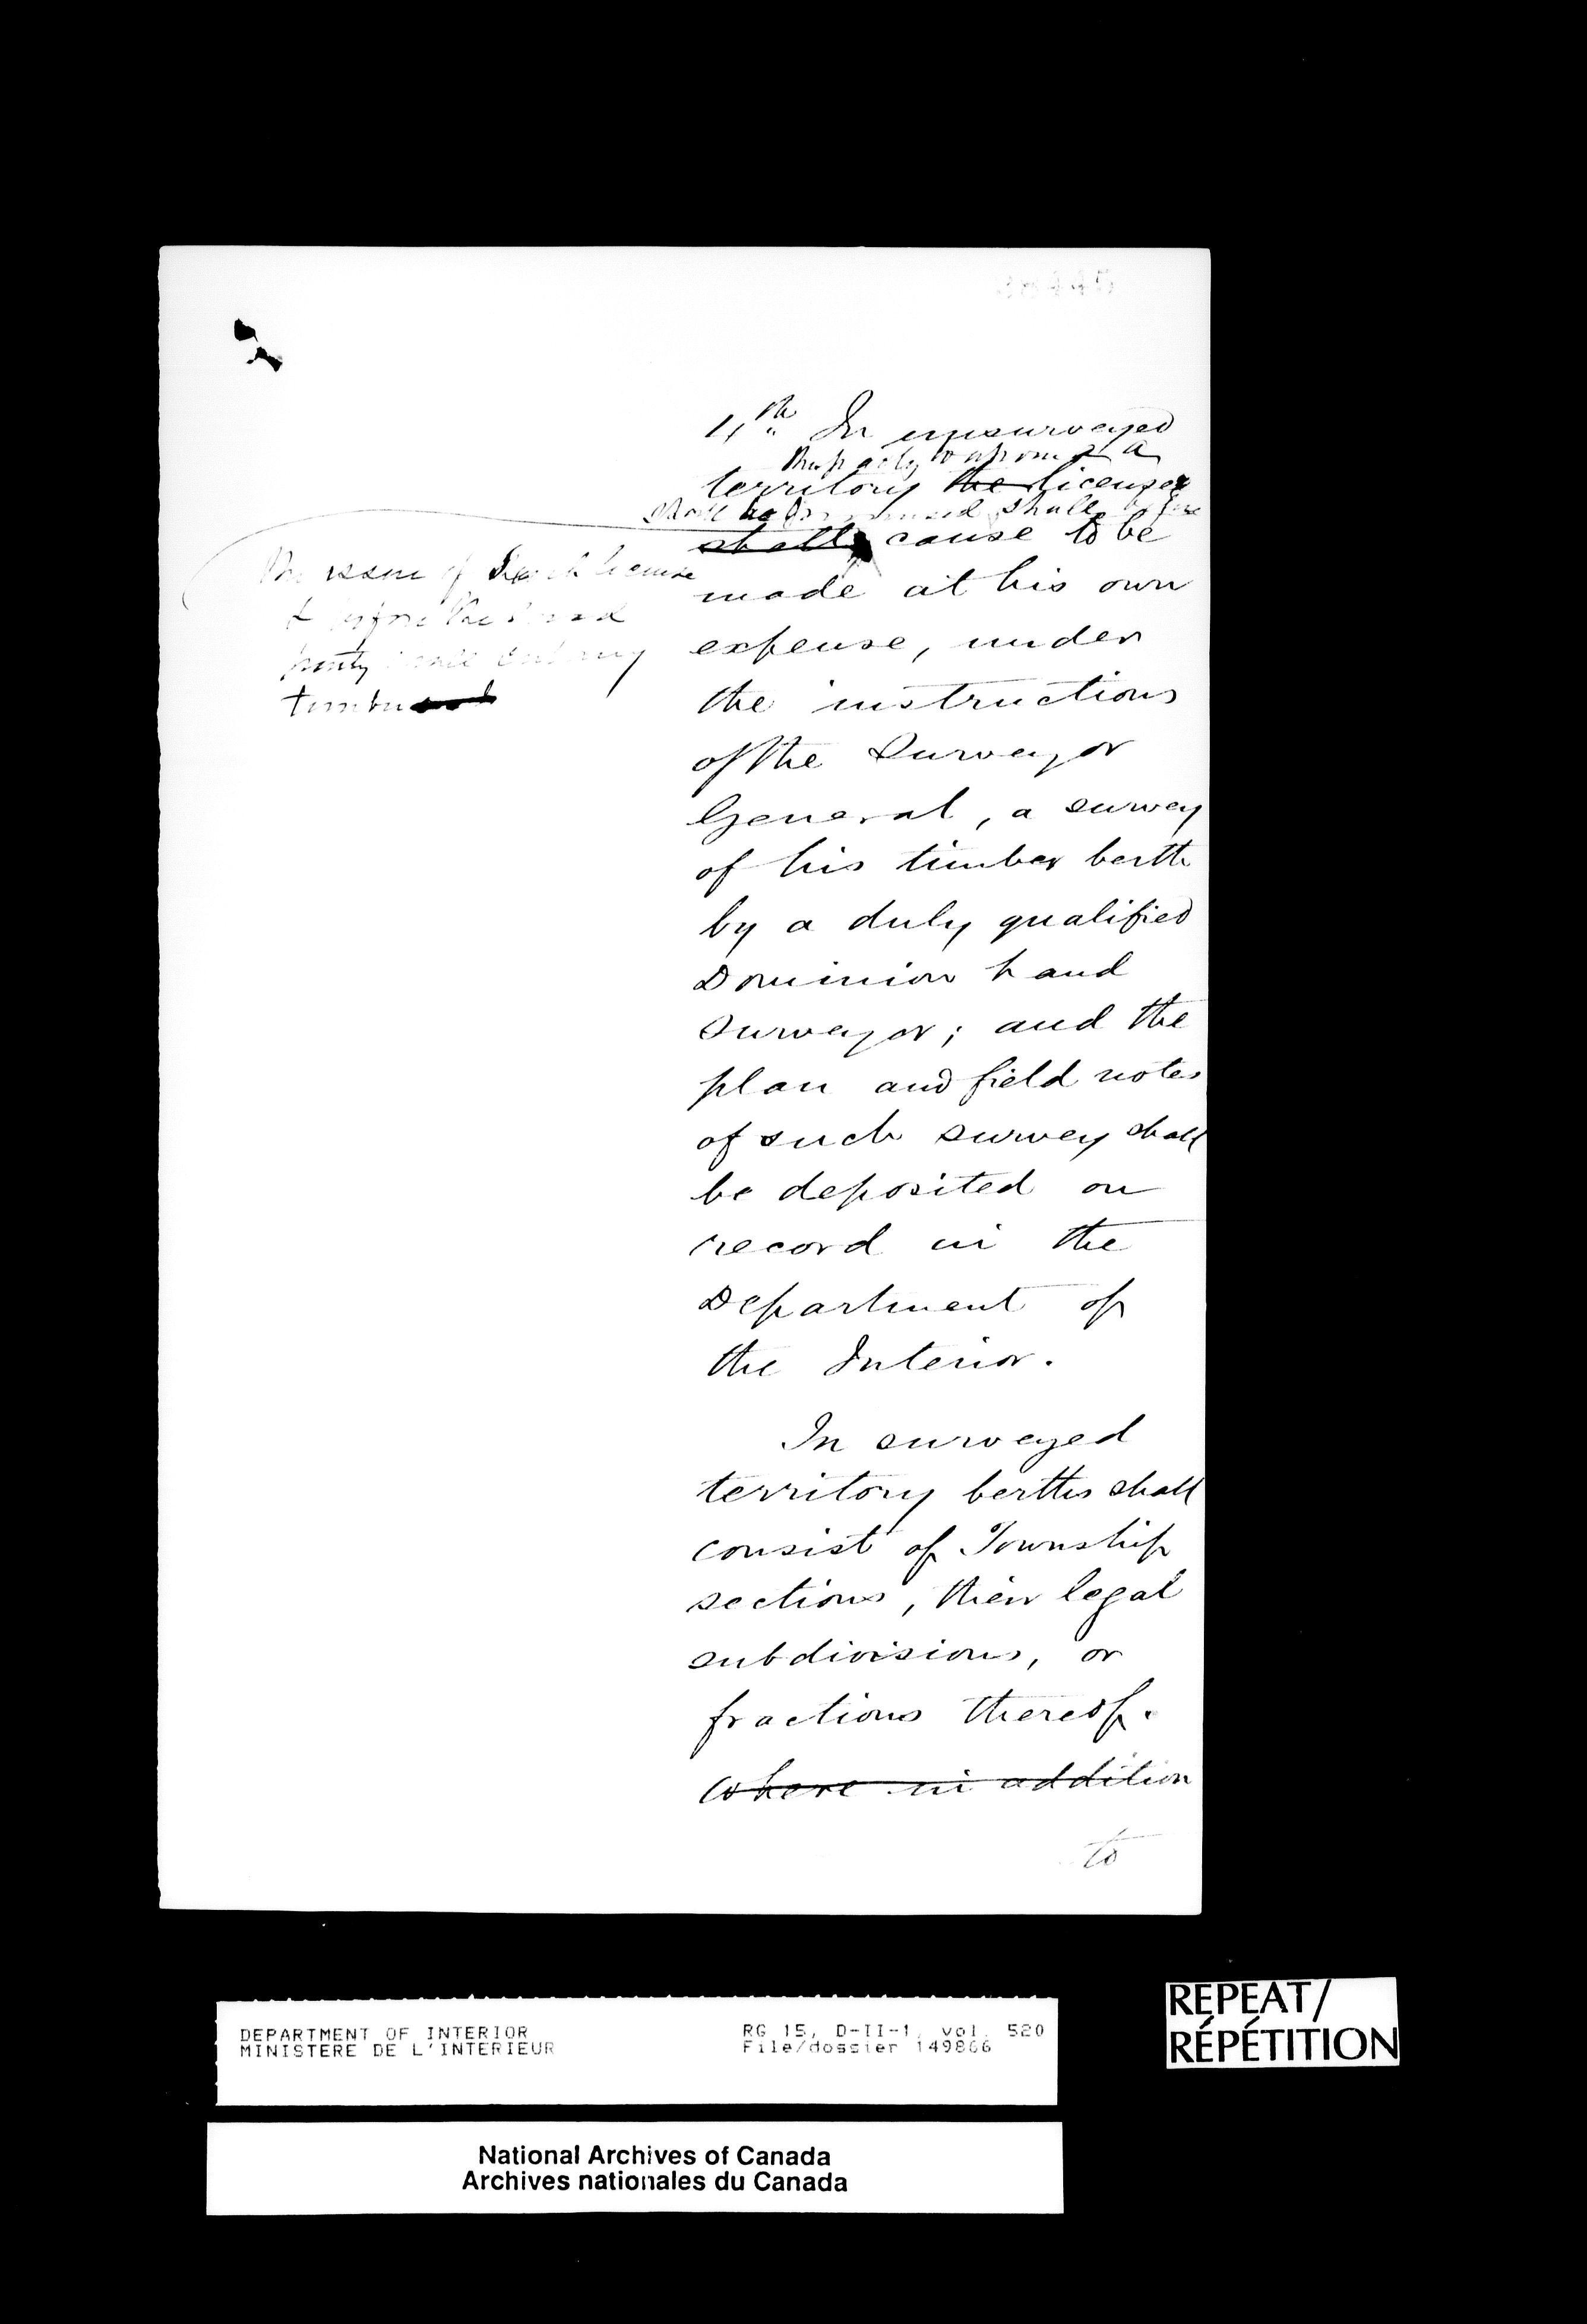 4th. In unsurveyed
the party to whom a
territory the license
shall be promised shall before
shall cause to be
the issue of such license
& before the said
party shall cut any
timber
made at his own
expense, under
the instructions
of the Surveyor
General, a survey
of his timber berth
by a duly qualified
Dominion Land
Surveyor; and the
plan and field notes
of such survey shall
be deposited on
record in the
Department of
the Interior.
In surveyed
territory berths shall
consist of Township
sections, their legal
subdivisions, or
fractions thereof.
Where in addition
to
DEPARTMENT OF INTERIOR
MINISTERE DE L'INTERIEUR
RG 15, D-II-1, vol. 520
File/dossier 149866
REPEAT/
RÉPÉTITION
National Archives of Canada
Archives nationales du Canada